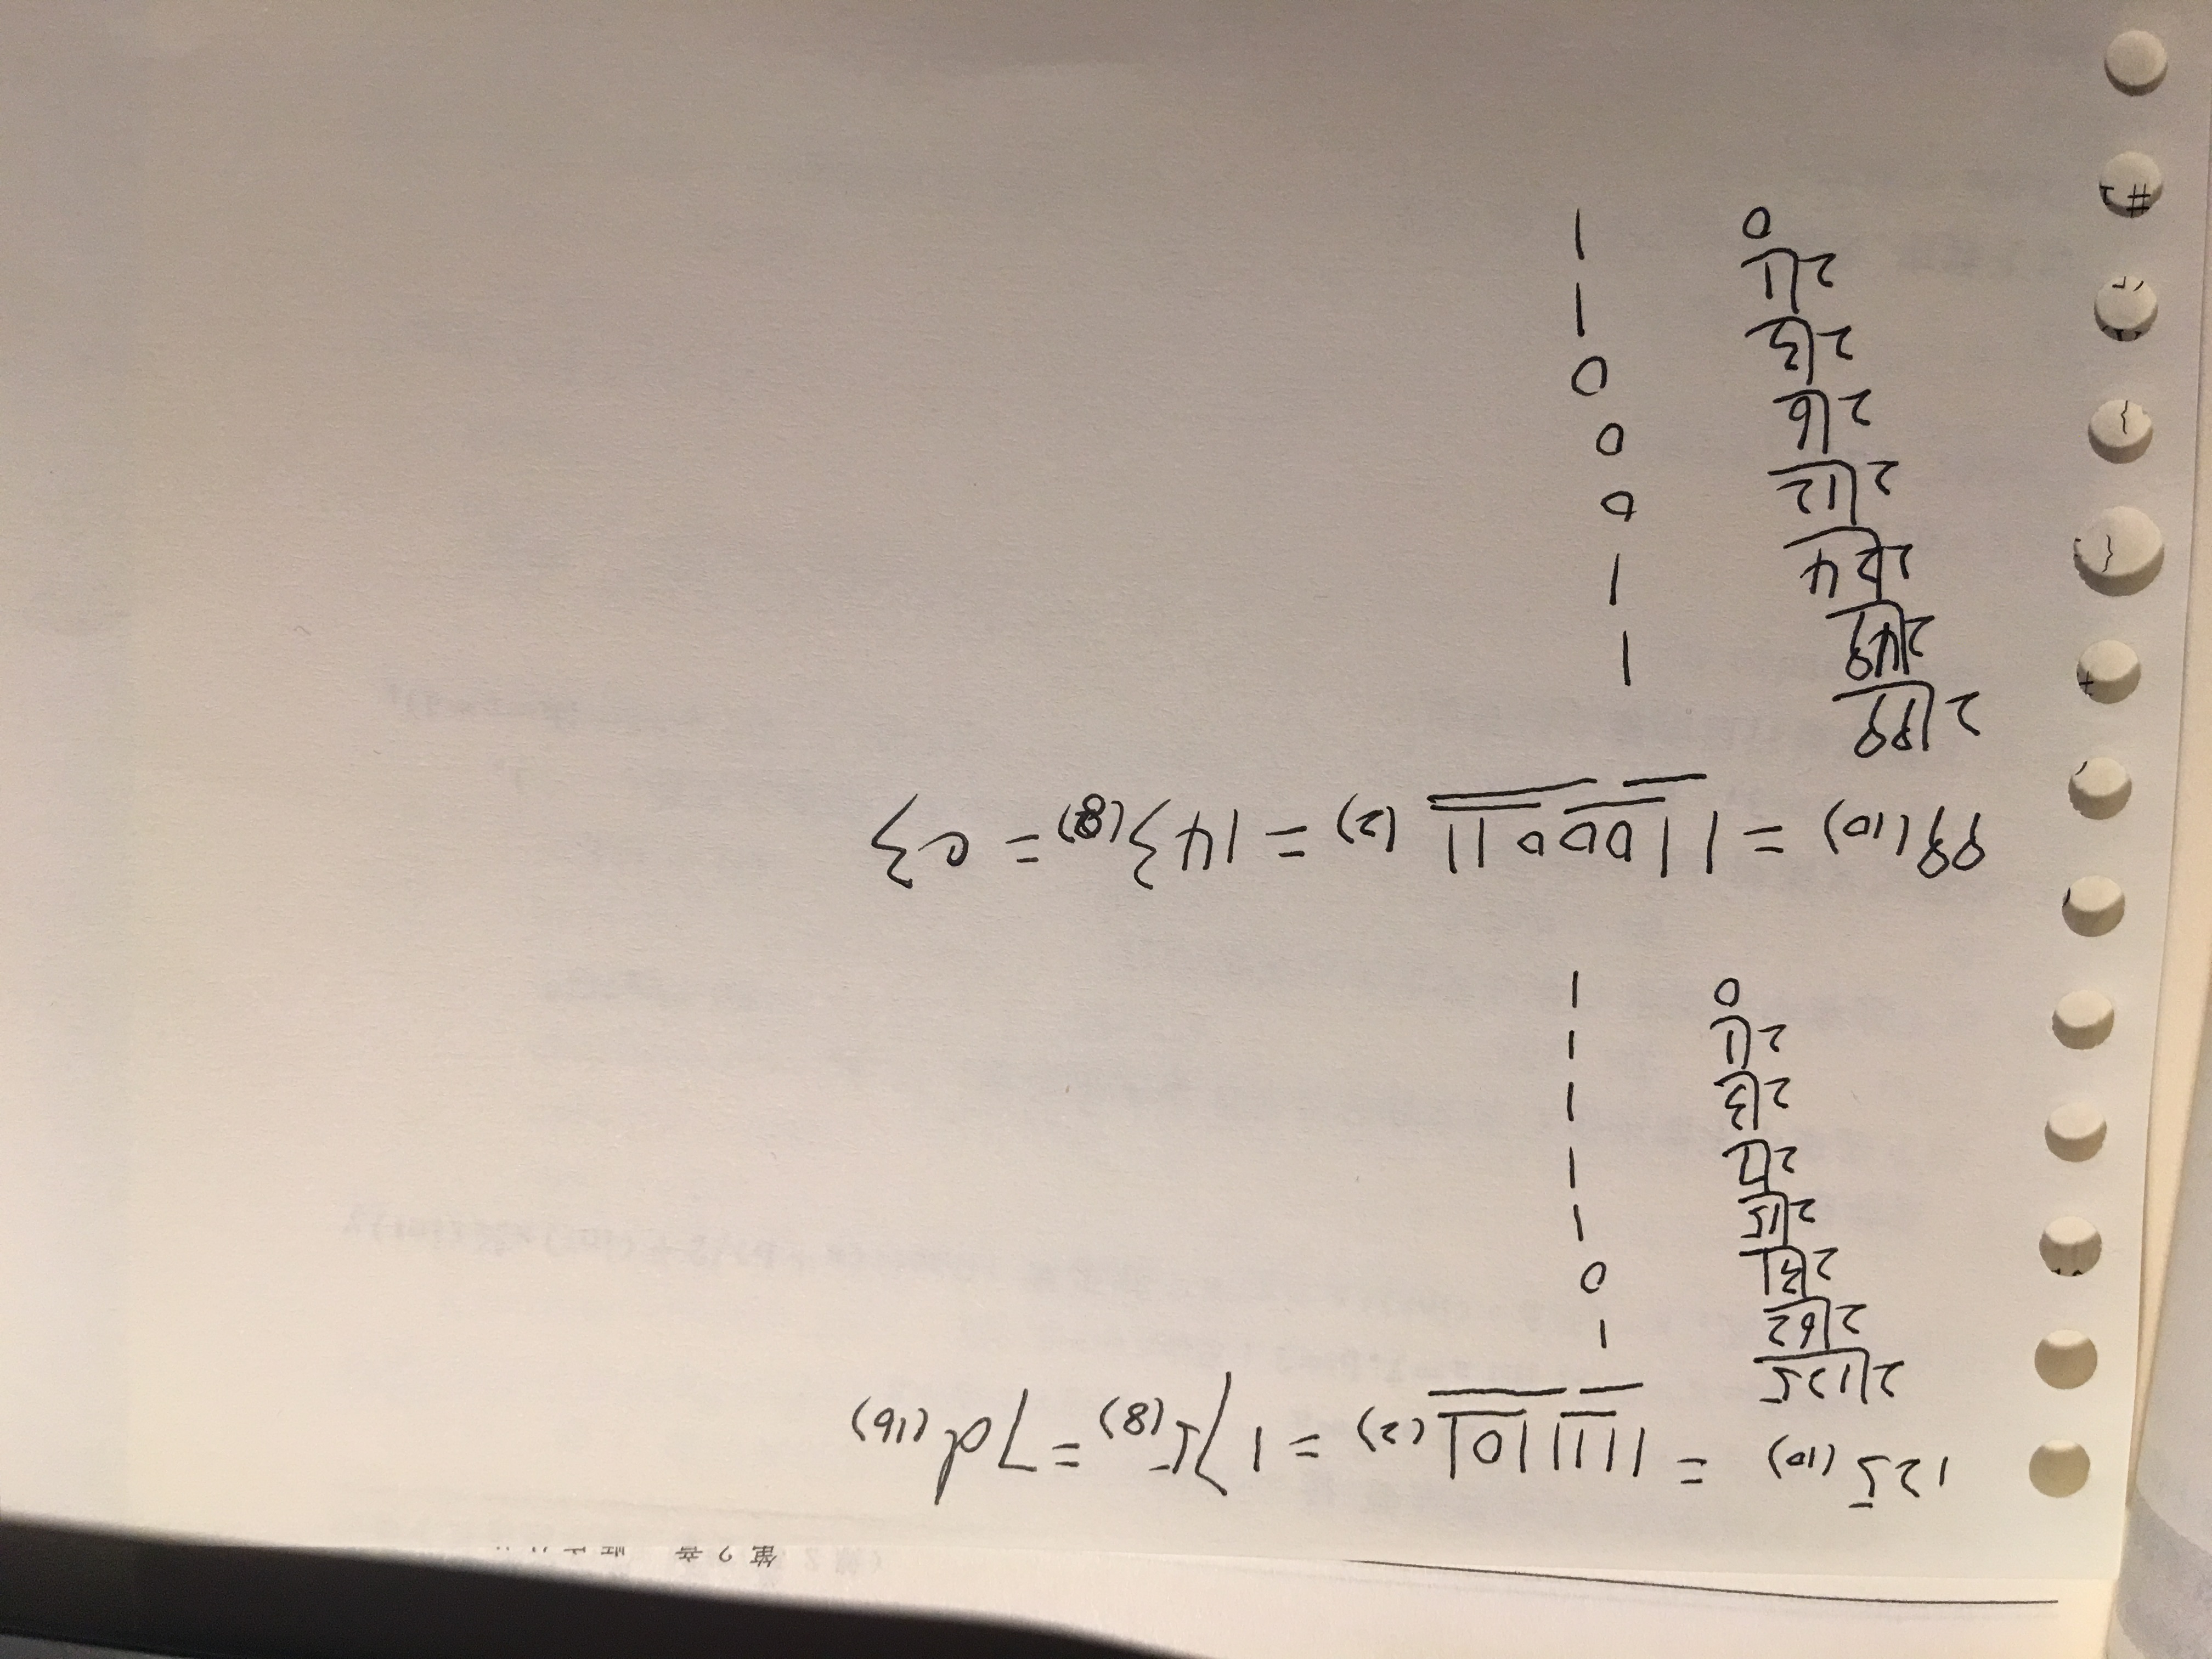 125(10) = 1111101(2) = 175(8) = 7d(16)
2 125 1
2 62 0
2 31 1
2 15 1
2 7 1
2 3 1
2 1 1
0
99(10) = 1100011(2) = 143(8) = c3
2 99 1
2 49 1
2 24 0
2 12 0
2 6 0
2 3 1
2 1 1
0